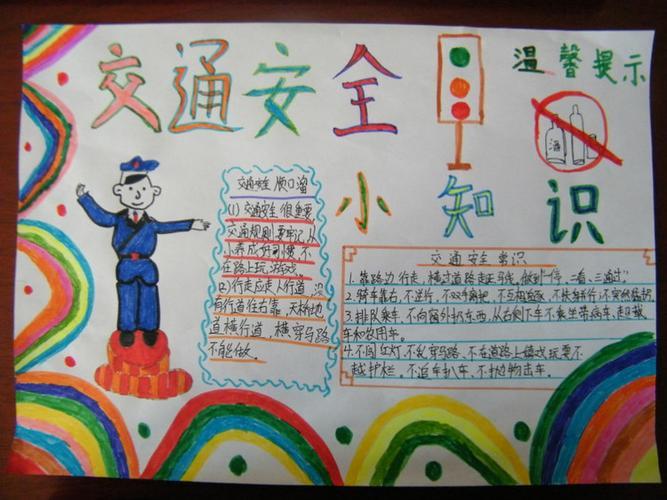 交通安全
温馨提示
酒
小知识
交通安全顺口溜
(1)交通安全很重要
交通规则要牢记,从
小养成好习惯,不
在路上玩游戏。
(2)行走应走人行道,没
有行道往右靠,天桥地
道横行道,横穿马路
不能做。
交通安全常识
1.靠路边行走,横过道路走斑马线,做到“一停、二看、三通过”。
2.骑车靠右,不逆行,不双手离把,不互相追逐,不扶身并行,不突然猛拐。
3.排队乘车,不向窗外扔东西,从右侧下车不乘坐带病车、超载
车和农用车。
4.不闯红灯,不乱穿马路,不在道路上嬉戏玩耍不
越护栏,不追车扒车,不扔物击车。